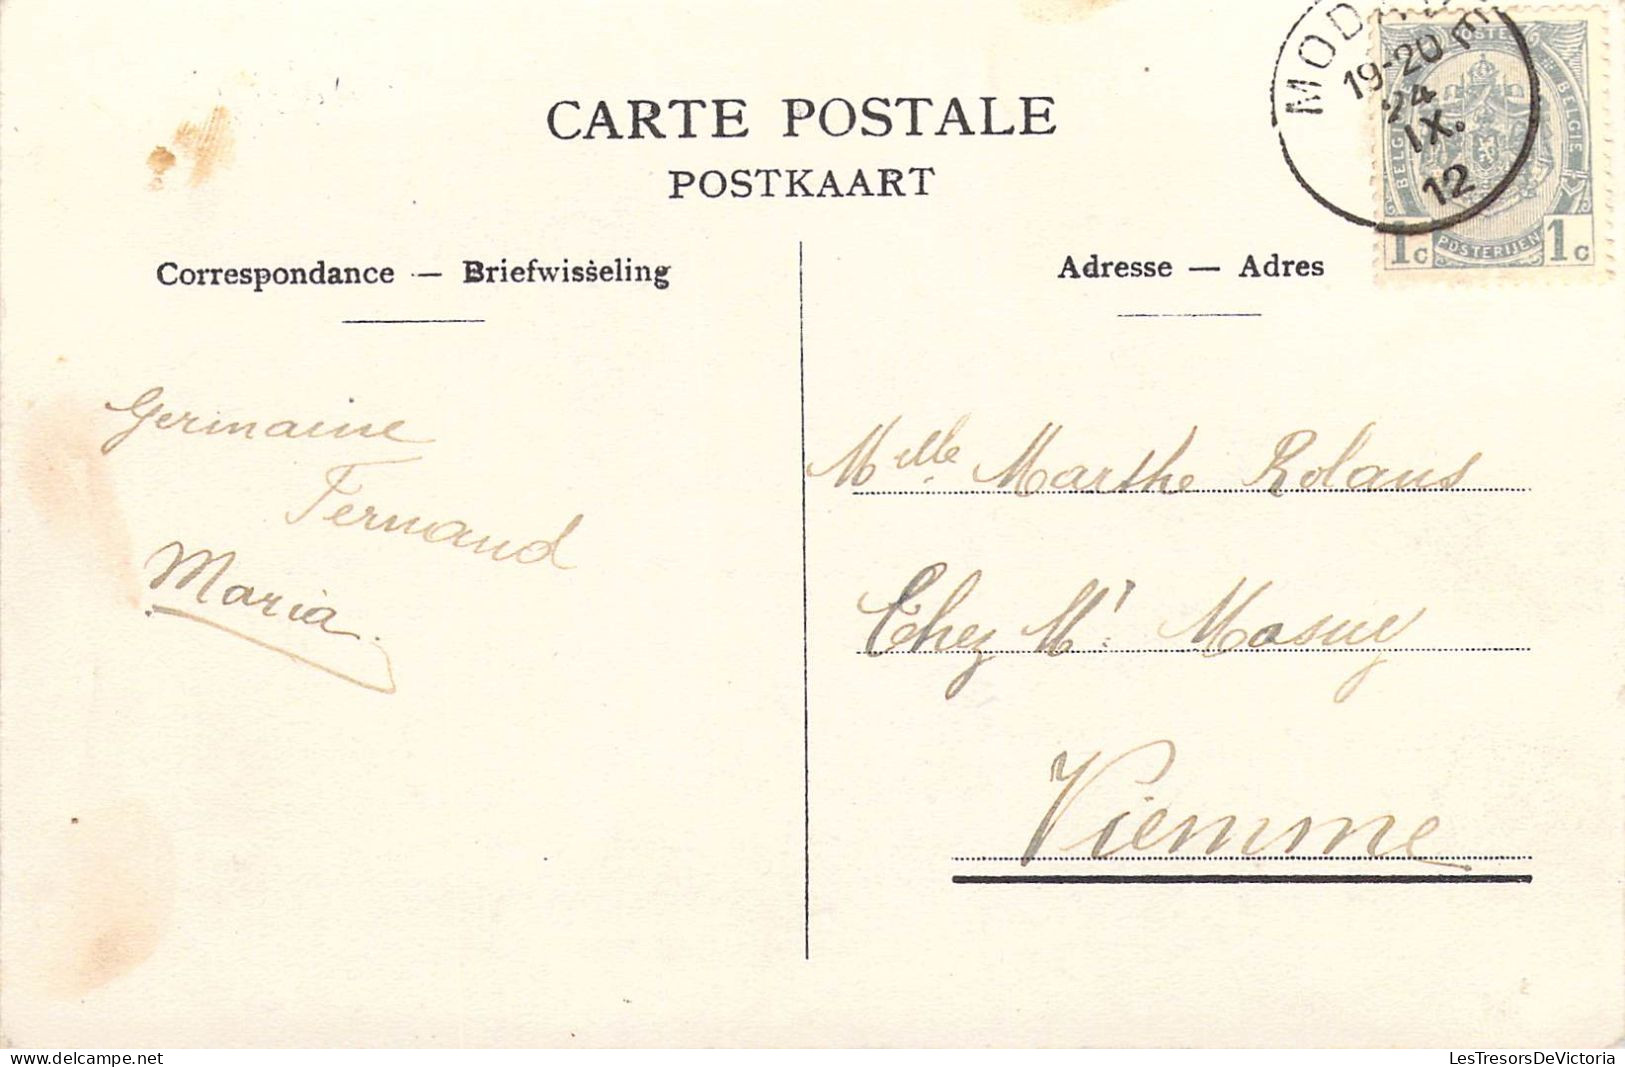 CARTE POSTALE
POSTKAART
Correspondance — Briefwisseling
Adresse — Adres
19-20
24
IX.
12
BELGIE
1c POSTERIJEN 1c
Germaine
Fernand
Maria
Mlle. Marthe Rolans
Chez Mr. Masuy
Viemme
LesTresorsDeVictoria